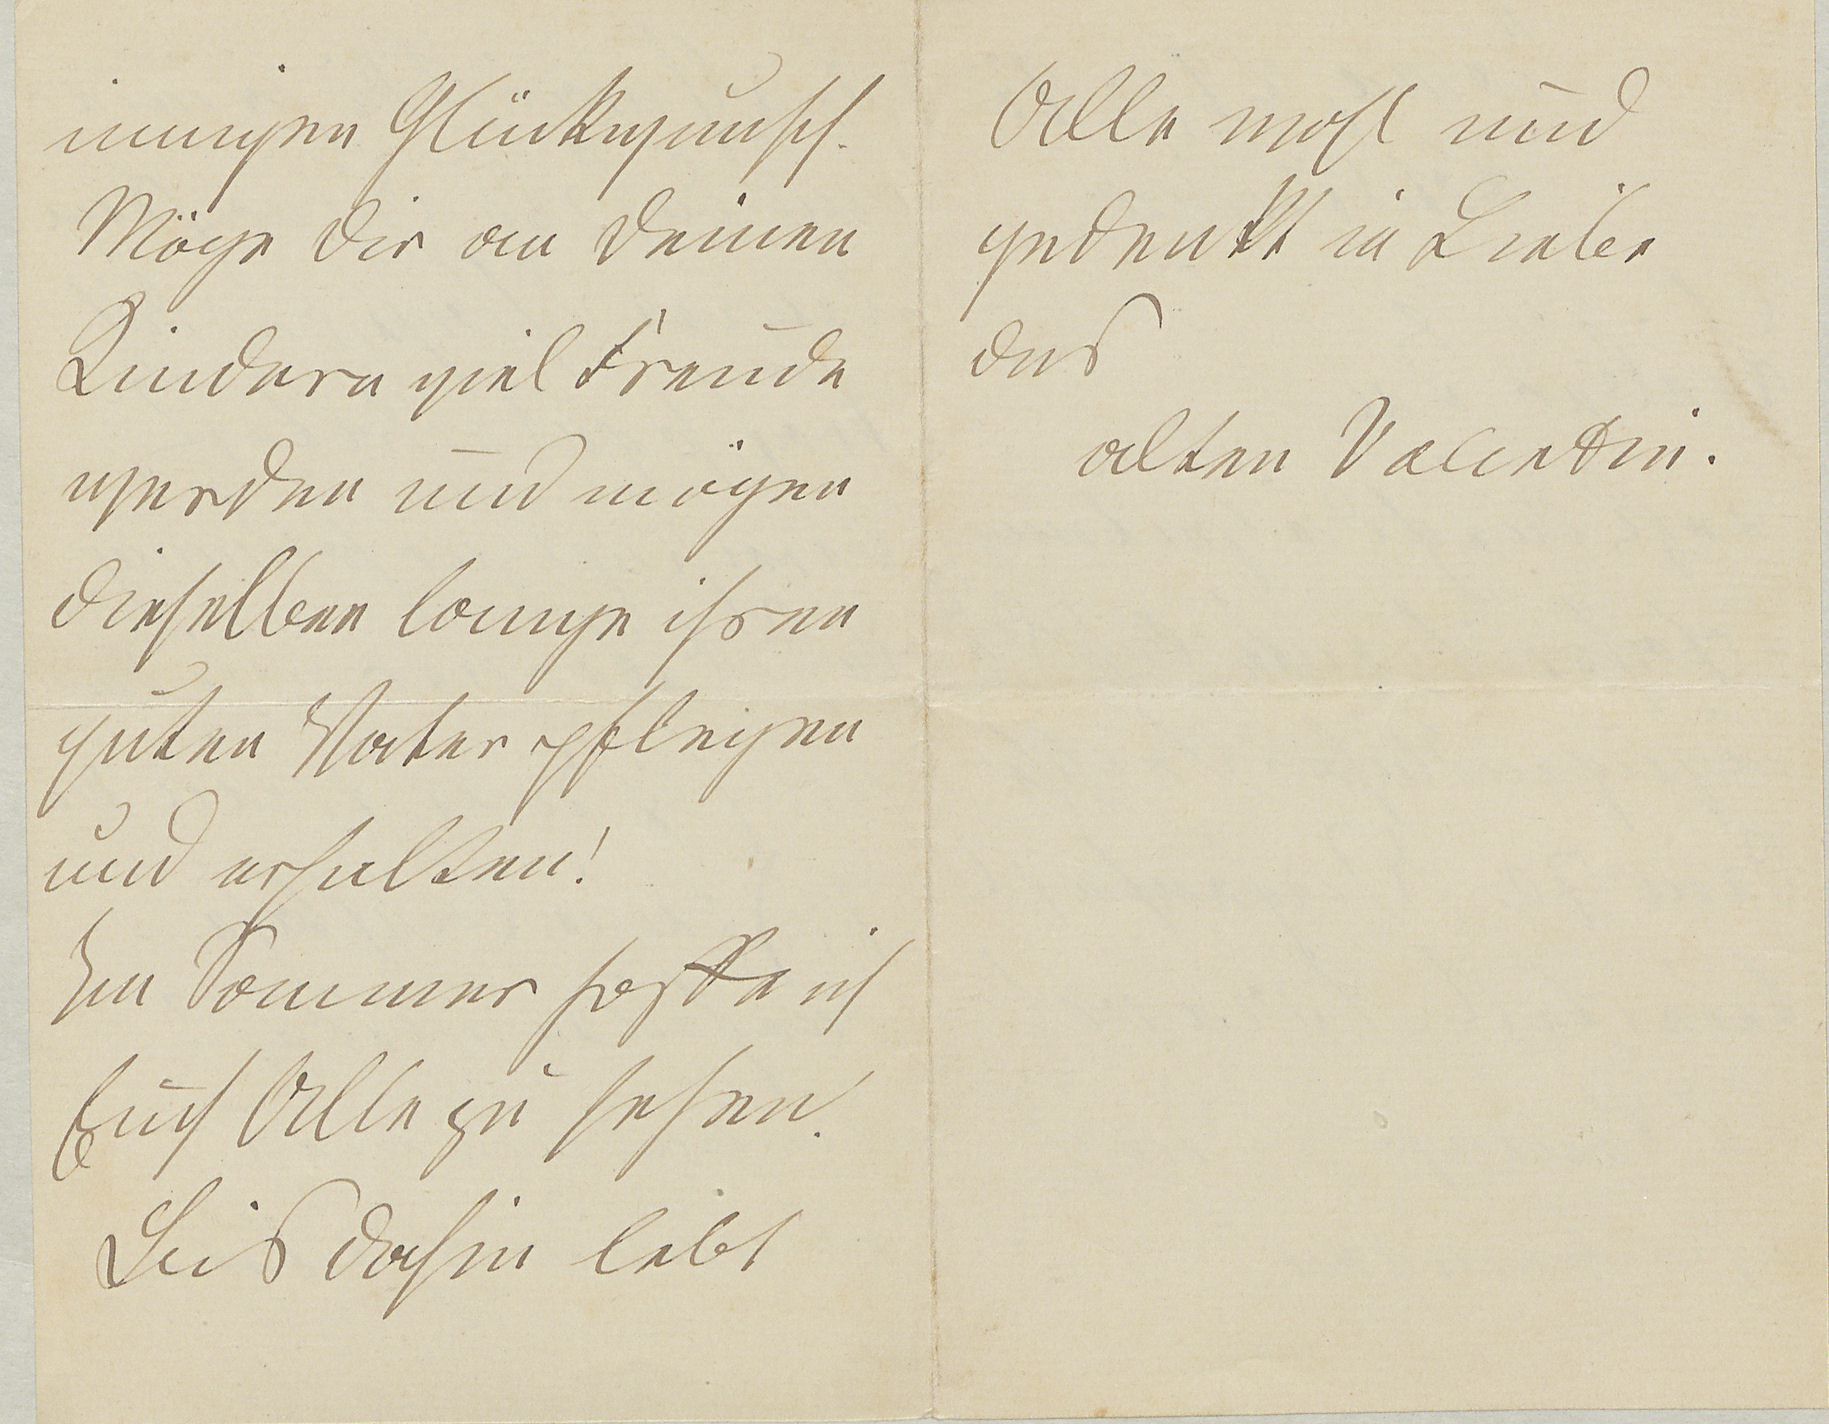 innigen Glückwunsch.
Möge Dir an Deinen
Kindern viel Freude
werden und mögen
dieselben lange ihren
guten Vater pflegen
und erhalten!
Im Sommer hoffe ich
Euch Alle zu sehen.
Bis dahin lebt
Alle wohl und
gedenkt in Liebe
des
alten Valentin.